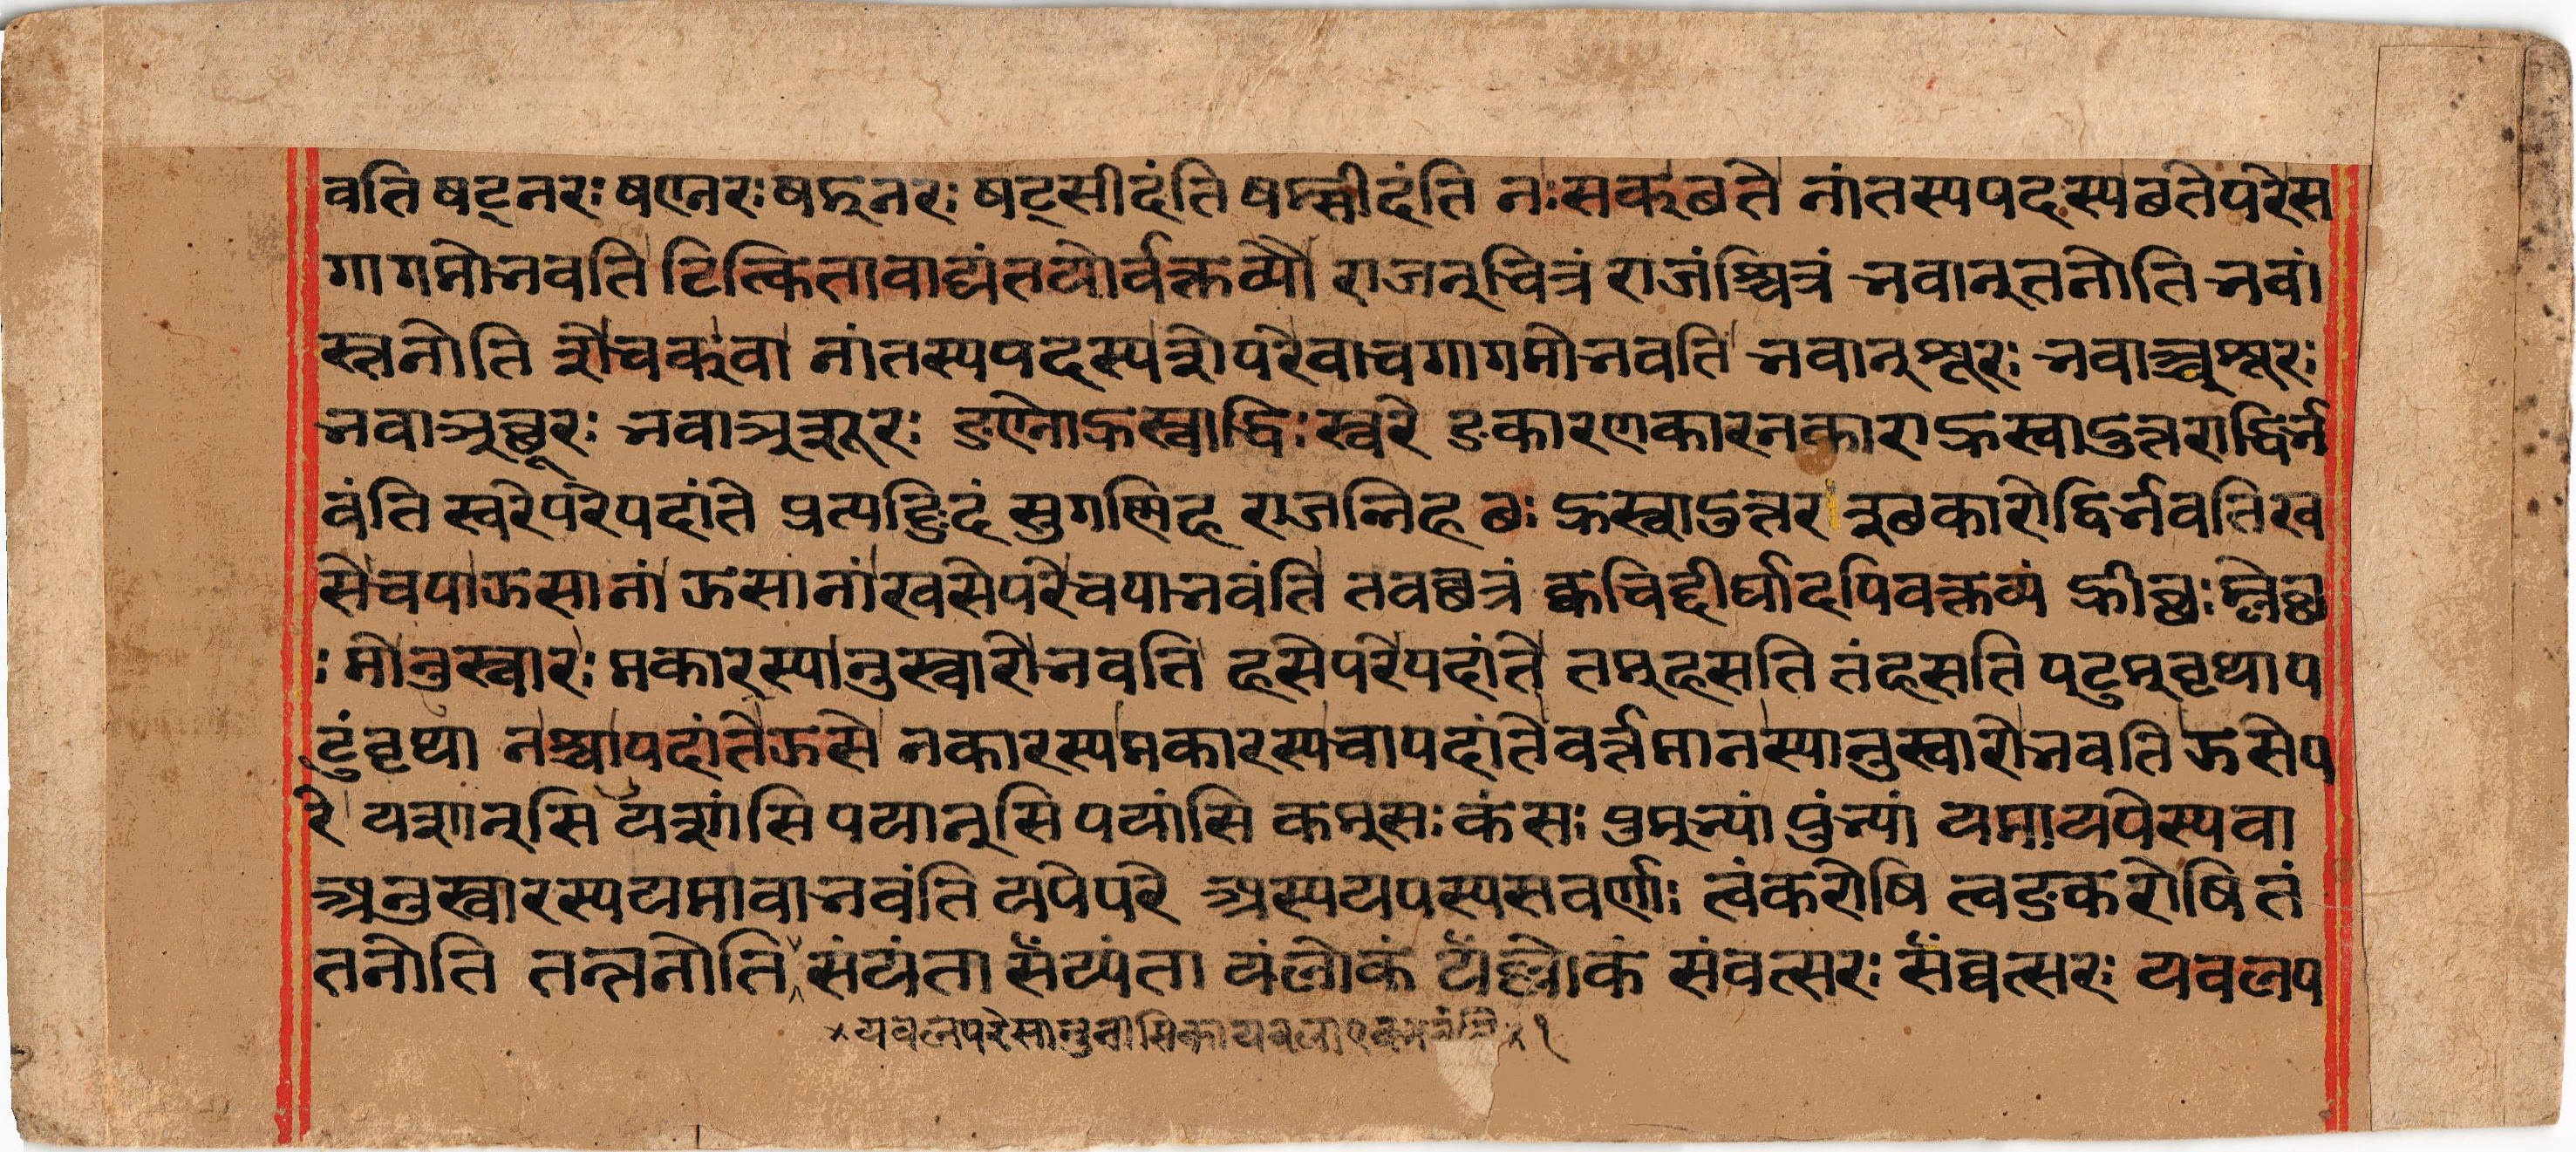 वति षट्नरः षण्नरः षड्नरः षट्सीदंति षड्सीदंति नः सक् छते नांतस्य पदस्य छते परे स
गागमो भवति टित्कितावाद्यंतयोर्वक्तव्यौ राजन् चित्रं राजंश्चित्रं भवान् तनोति भवां
स्तनोति ञ्शे चक् वा नांतस्य पदस्य शे परे वा चगागमो भवति भवान् शूरः भवाञ्च्शूरः
भवाञ्छूरः भवाञ्शूरः ङ्णनो ह्रस्वाद्द्विः स्वरे ङकारणकारनकारा ह्रस्वादुत्तरा द्विर्भ
वंति स्वरे परे पदांते प्रत्यङ्ङिदं सुगण्णिह राजन्निह छः ह्रस्वादुत्तर छकारो द्विर्भवति ख
से चपा झसानां झसानां खसे परे चपा भवंति तवच्छत्रं क्वचिद्दीर्घादपि वक्तव्यं ह्रीच्छः म्लेच्छ
ः मोनुस्वारः मकारस्यानुस्वारो भवति हसे परे पदांते तम् हसति तं हसति पटुम् वृथा प
टुं वृथा नश्चापदांते झसे नकारस्य मकारस्य चापदांते वर्त्तमानस्यानुस्वारो भवति झसे प
रे यशान्सि यशांसि पयान्सि पयांसि कम्सः कंसः पुम्भ्यां पुंभ्यां यमा यपेस्य वा
अनुस्वारस्य यमा वा भवंति यपे परे अस्य यपस्य सवर्णाः त्वं करोषि त्वङ्करोषि तं
तनोति तन्तनोति संयंता सँय्यंता यंलोकं यँल्लोकं संवत्सरः सँव्वत्सरः यवलप
×यवलपरे सानुनासिका यवला × १